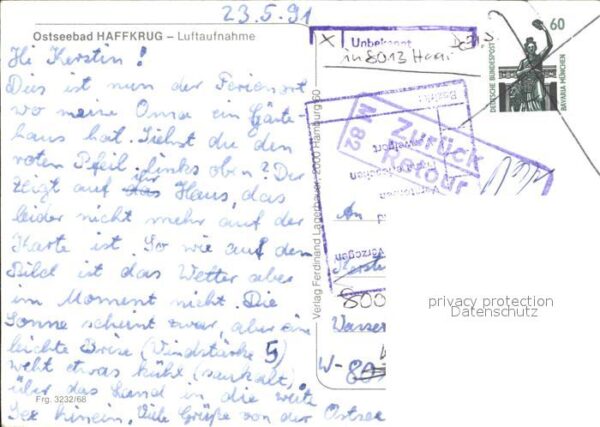 23.5.91
Ostseebad HAFFKRUG – Luftaufnahme
Hi Kerstin!
Dies ist nun der Ferienort
wo meine Oma ein Gäste-
haus hat. Siehst du den
roten Pfeil links oben? Der
zeigt auf ihr Haus, das
leider nicht mehr auf der
Karte ist. So wie auf dem
Bild ist das Wetter aber
im Moment nicht. Die
Sonne scheint zwar, aber eine
leichte Brise (Windstärke 5)
weht etwas kühl (saukalt)
über das Land in die weite
See hinein. Viele Grüße von der Ostsee
Frg. 3232/68
Verlag Ferdinand Lagerbauer, 2000 Hamburg 60
X Unbekannt
in 8013 Haar
Zurück
Retour
M 82
Verzogen
60
DEUTSCHE BUNDESPOST
BAVARIA MÜNCHEN
An
Kerstin
800
Wasser
W-80
privacy protection
Datenschutz